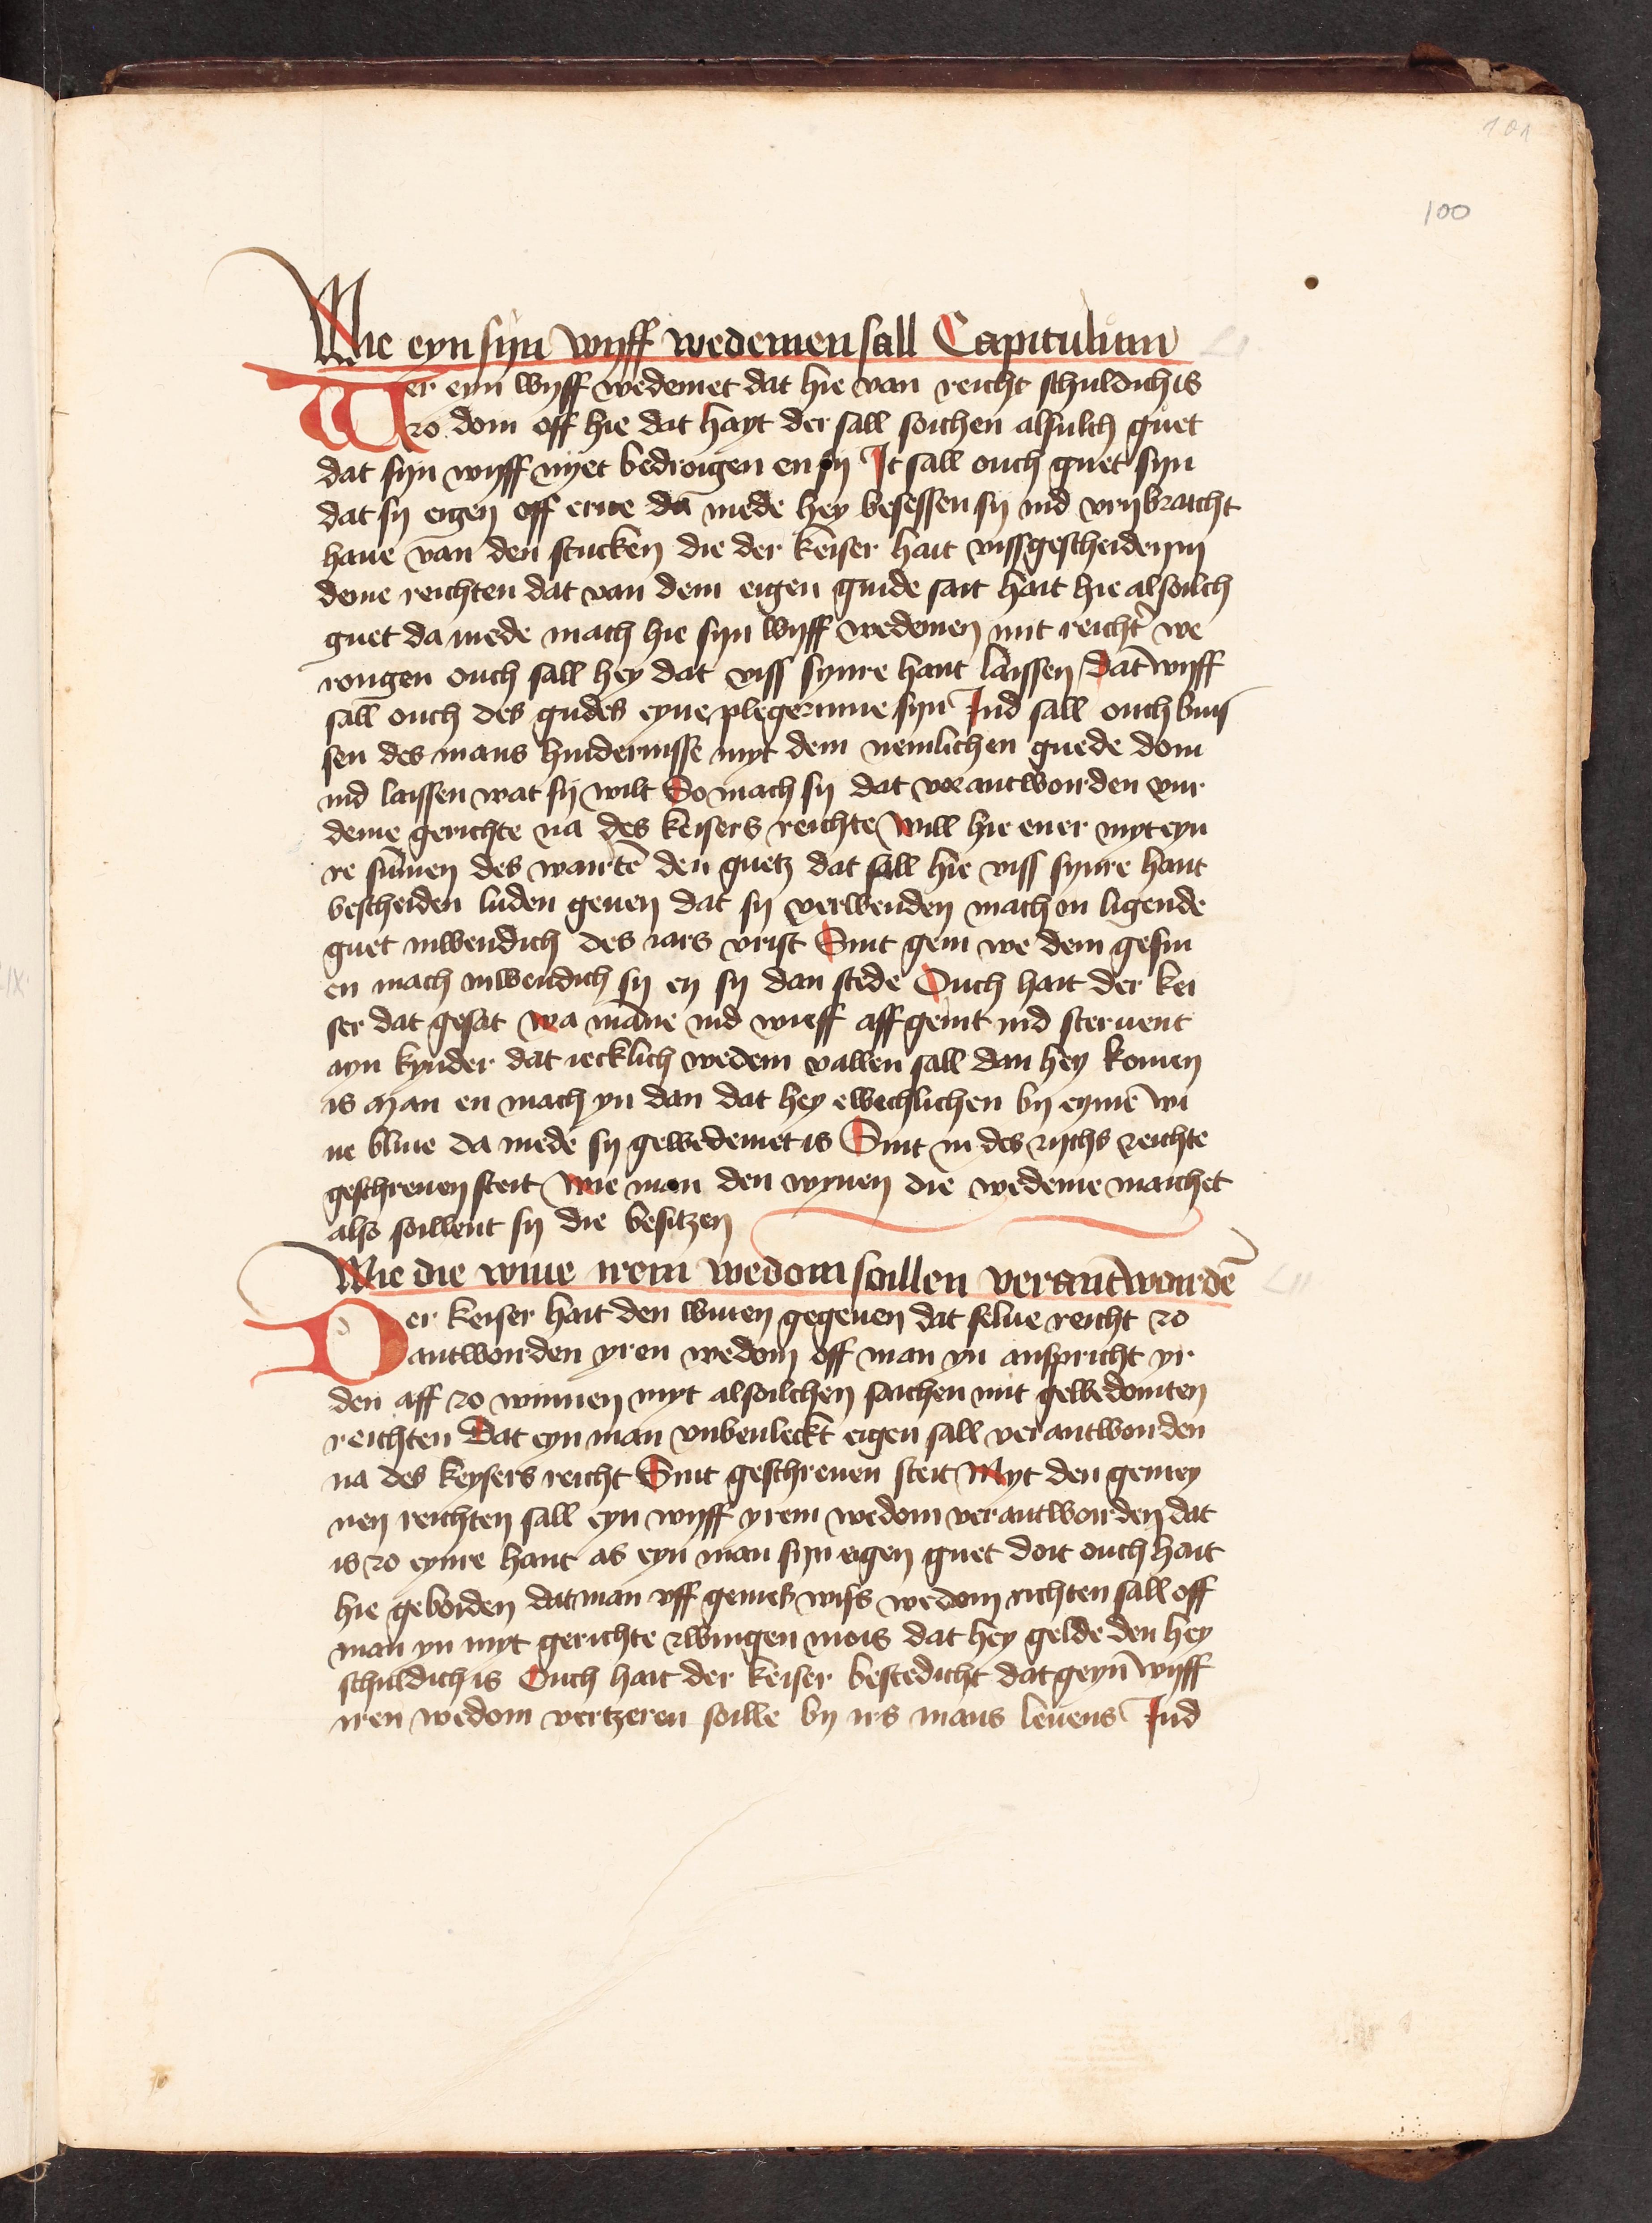 101
100
Wie eyn syn wyff wedemen sall Capitulum LI
Wer eyn wyff wedemet dat hie van reicht schuldich is
zo doin off hie dat hayt der sall soichen alsulch guet
dat syn wyff nyet bedroigen en sy It sall ouch guet syn
dat sy eigen off erue dā mede hey besessen sy ind vrybraicht
haue van den stucken die der keiser hait vissgescheiden in
deme reichten dat van dem eigen guide sait hait hie alsoilch
guet da mede mach hie syn wyff wedemen mit reicht we
rongen ouch sall hey dat viss synre hant laissen dat wyff
sall ouch des gudes eyne plegerinne syn Ind sall ouch buis
sen des mans hindernisse myt dem nemlichen guede doin
ind laissen wat sy wilt So mach sy dat verantworden vur
deme gerichte na des keisers reichte Will hie euer myt eyn
re sūmen des wairtē den guetz dat sall hie viss synre hant
bescheiden luden geuen dat sy verwenden mach on ligende
guet inwendich des iars vrist Sint gein we dem gesin
en mach inwendich sy en sy dan stede Ouch hait der kei
ser dat gesat wa māne ind wieff aff geint ind steruent
ayn kynder dat iecklich wedem vallen sall dan hey komen
is man en mach yn dan dat hey ewichlichen by eyme wi
ue bliue da mede sy gewedemet is Sint in des rychs reichte
geschreuen steit wie man den wyuen die wedeme maichet
also soillent sy die besitzen
Wie die wiue irem wedom soillen verantwordē LII
Der keiser hait den wiuen gegeuen dat selue reicht zo
antworden yren wedom off man yn anspricht yr
den aff zo winnen myt alsoilchen sachen mit gewedomten
reichten Dat eyn man vnbeuleckt eigen sall verantworden
na des keysers reicht Sint geschreuen steit Myt den gemey
nen reichten sall eyn wyff yrem wedom verantworden dat
is zo eynre hant as eyn man syn eigen guet doit ouch hait
hie geboiden dat man vff gemeß wifs wedom richten sall off
man yn myt gerichte zwingen mois dat hey gelde den hey
schuldich is Ouch hait der keiser bestedicht dat geyn wyff
iren wedom vertzeren soille by irs mans leuens Ind